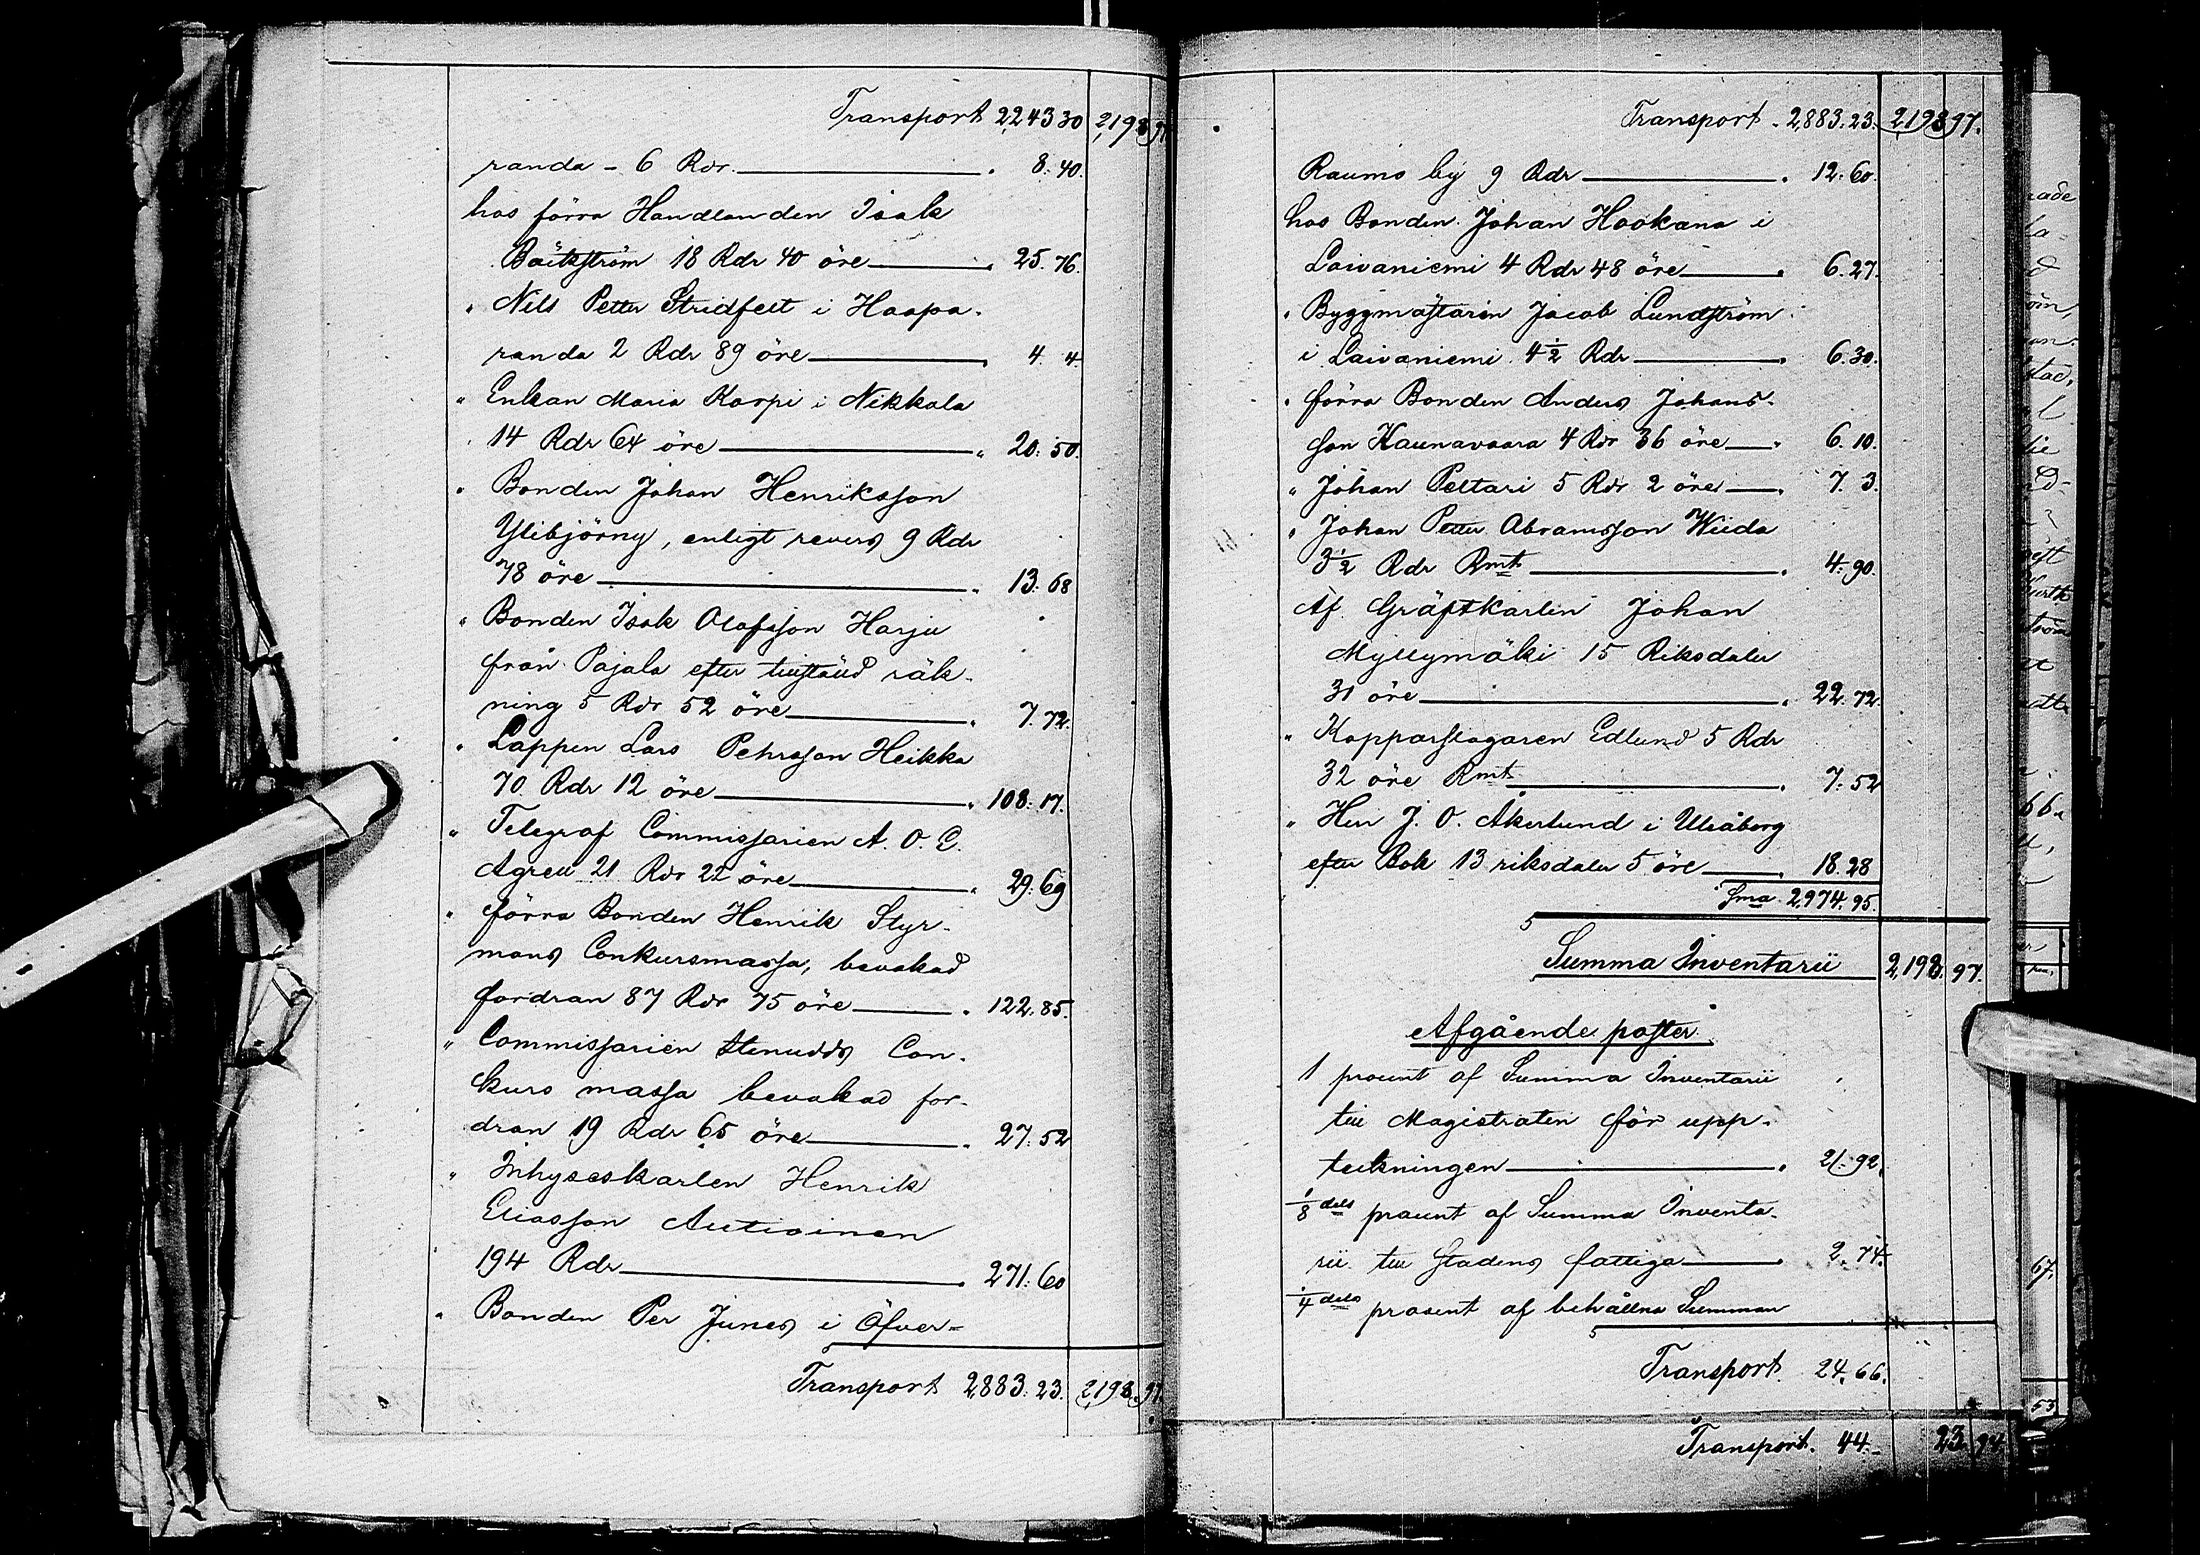 Transport 2,243 30 2,198 97
randa - 6 Rdr. 8. 40.
hos förra Handlanden Isak
Bäckström 18 Rdr 40 öre 25. 76.
" Nils Petter Stridfelt i Haapa-
randa 2 Rdr 89 öre 4. 4.
" Enkan Maria Karpi i Nikkala
14 Rdr 64 öre " 20. 50.
" Bonden Johan Henriksson
Ylibjörny, enligt revers 9 Rdr
78 öre " 13. 68
" Bonden Isak Olofsson Harju
från Pajala efter tillstäld räk-
ning 5 Rdr 52 öre 7. 72.
" Lappen Lars Pehrsson Heikka
70 Rdr 12 öre " 108. 17.
" Telegraf Commissarien A. O. E.
Agrell 21 Rdr 22 öre " 29. 69
" förra Bonden Henrik Styr-
mans Conkursmassa, bevakad
fordran 87 Rdr 75 öre " 122. 85.
" Commissarien Stenudds Con-
kurs massa bevakad for-
dran 19 Rdr 65 öre " 27. 52
" Inhyseskarlen Henrik
Eliasson Autioinen
194 Rdr " 271. 60
" Bonden Per Junes i Öfver-
Transport 2,883. 23. 2,198. 97.
Transport 2,883. 23. 2,198 97.
Raumo by 9 Rdr " 12. 60.
hos Bonden Johan Hookana i
Laivaniemi 4 Rdr 48 öre " 6. 27.
" Byggmästaren Jacob Lundström
i Laivaniemi 4 1/2 Rdr " 6. 30.
" förra Bonden Anders Johans-
son Kaunavaara 4 Rdr 36 öre " 6. 10.
" Johan Peltari 5 Rdr 2 öre " 7. 3.
" Johan Petter Abramsson Wiida
3 1/2 Rdr Rmt " 4. 90.
Af Gräftkarlen Johan
Myllymäki 15 Riksdaler
31 öre " 22. 72.
" Kopparslagaren Edlund 5 Rdr
32 öre Rmt " 7. 52
" Herr J. O. Åkerlund i Uleåborg
efter Bok 13 riksdaler 5 öre " 18. 28
Sma 2,974. 95.
Summa Inventarii 2,198. 97.
Afgående poster.
1 procent af Summa Inventarii
till Magistraten för upp-
teckningen " 21. 92.
1/8 dels procent af Summa Inventa-
rii till Stadens fattiga 2. 74.
1/4 dels procent af behållna Summan
Transport. 24. 66.
Transport. 44.- 23 94